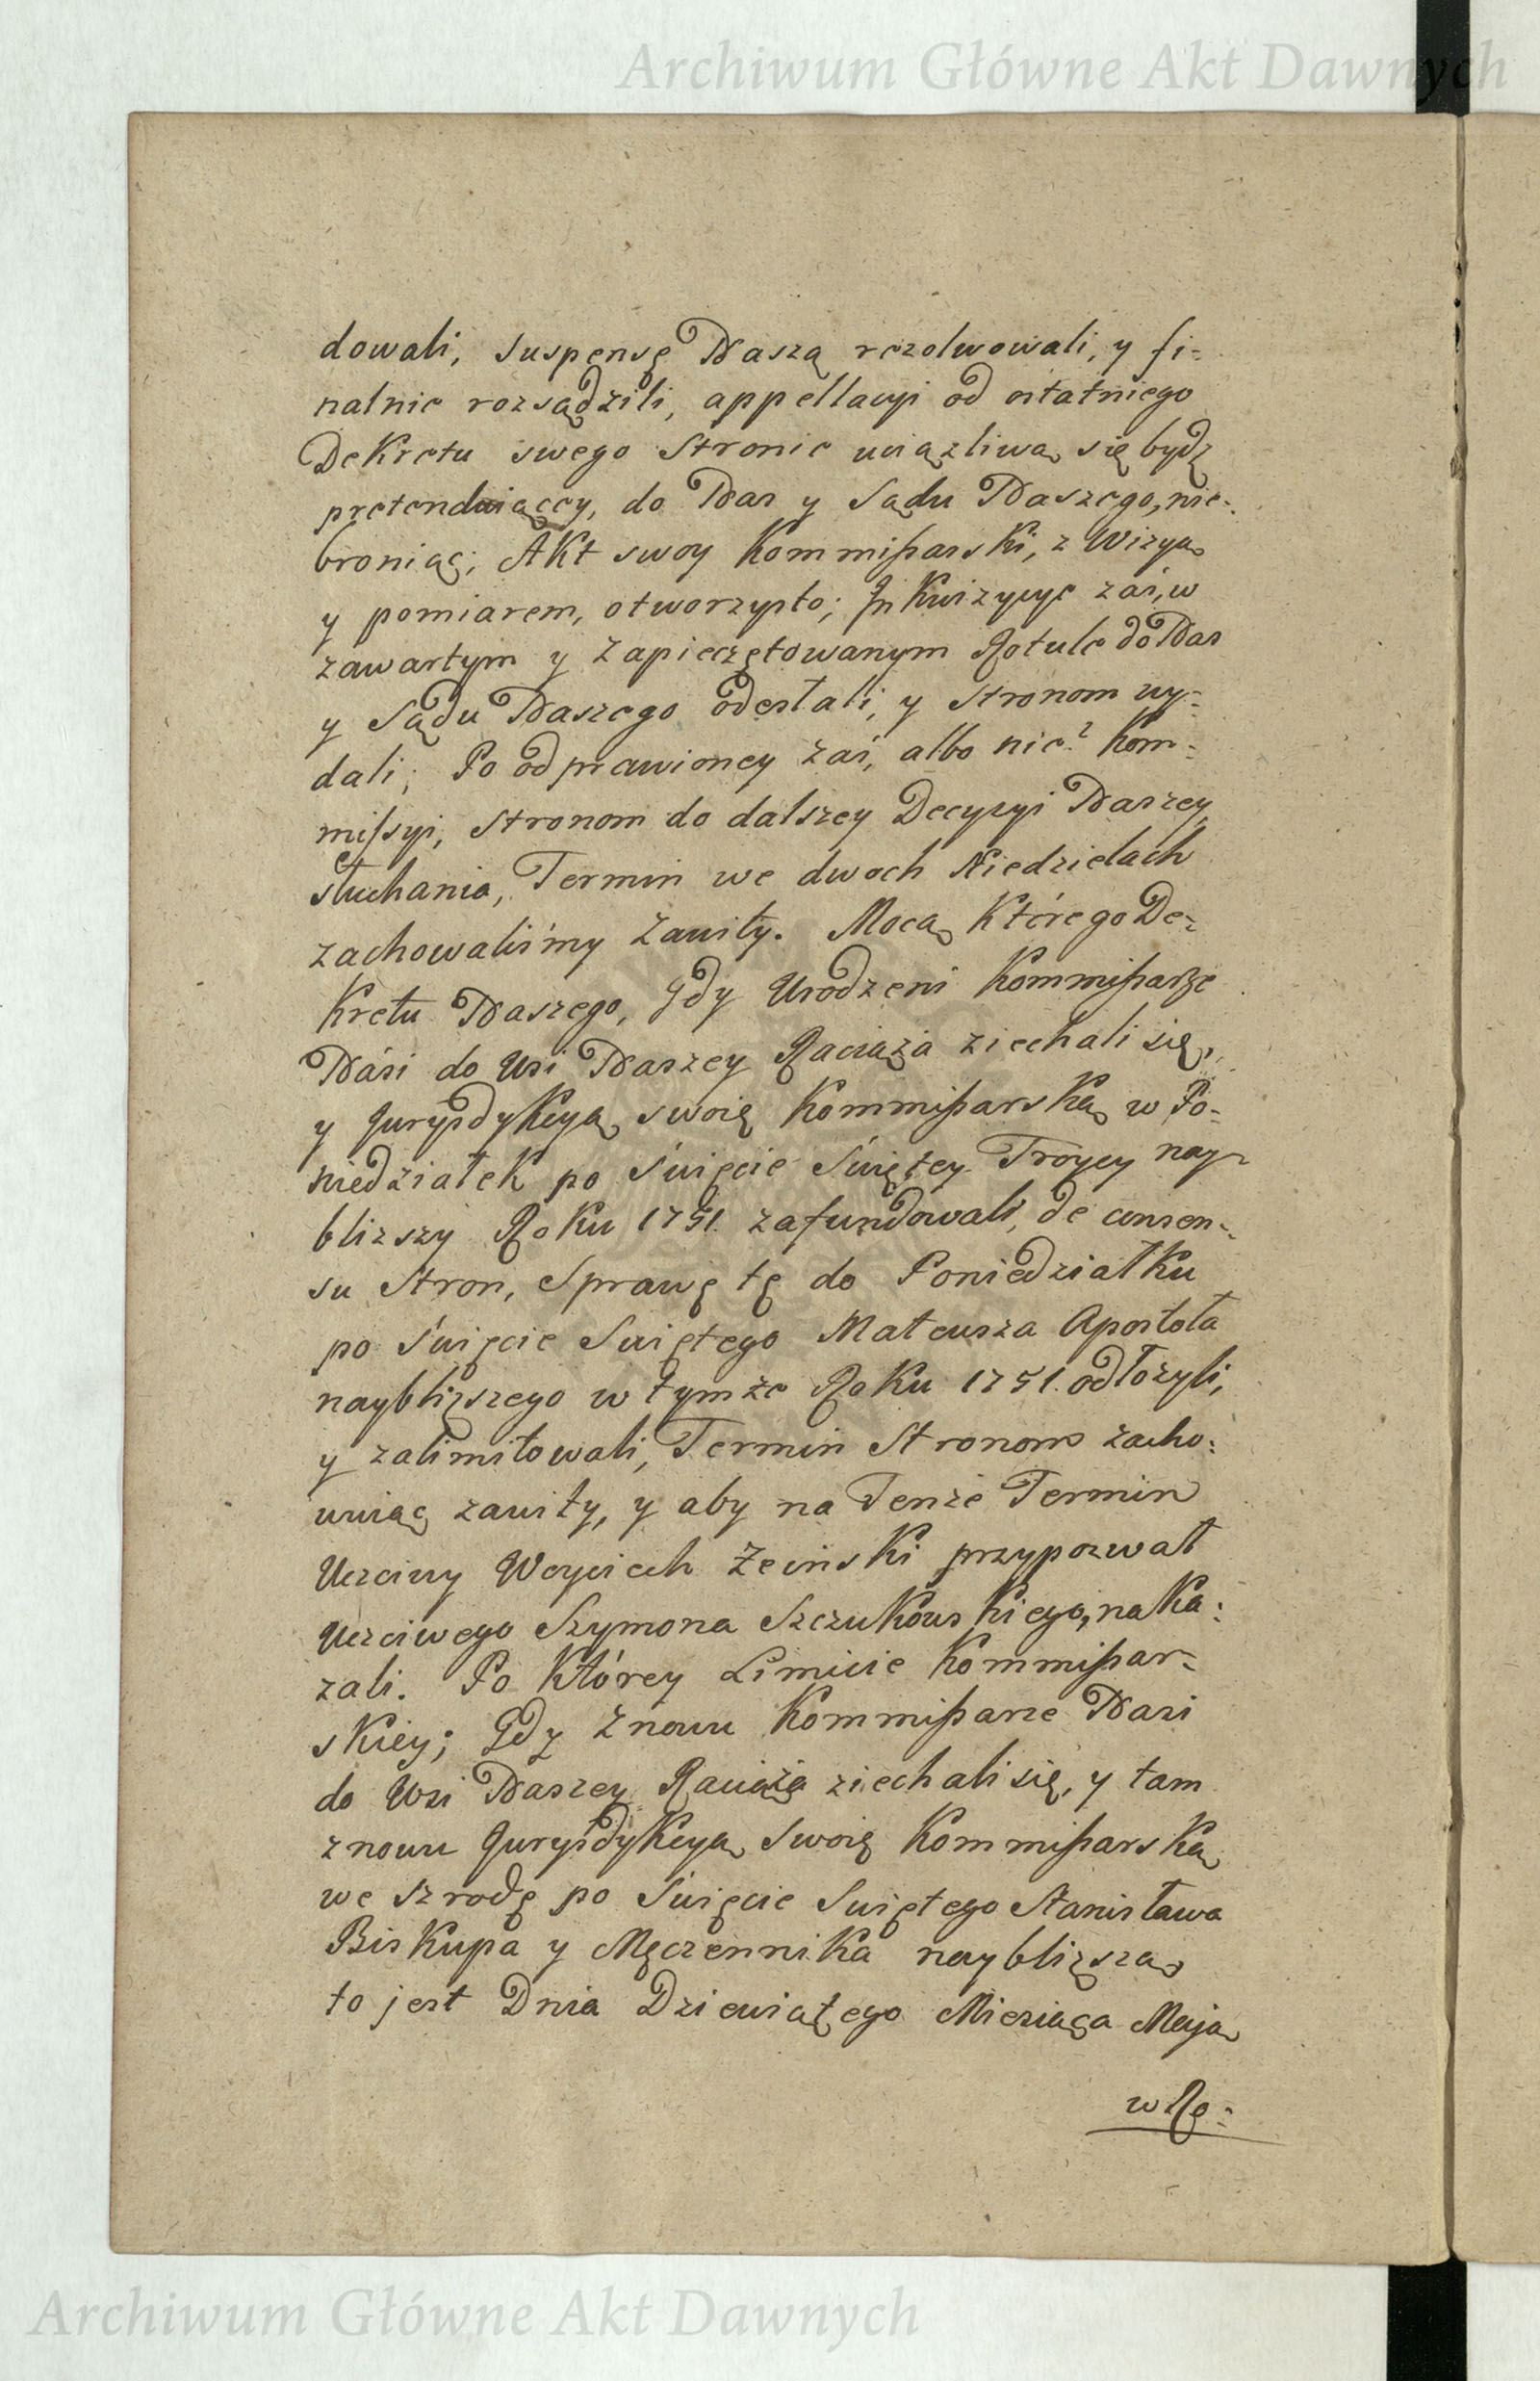 Archiwum Główne Akt Dawnych
dowali, suspensę Naszą rezolwowali, y fi-
nalnie rozsądzili, appellacyi od ostatniego
Dekretu swego Stronie uciązliwą się bydź
pretenduiącey, do Nas y Sądu Naszego, nie-
broniąc; Akt swoy Kommißarski, z Wizyą
y pomiarem, otworzysto; Inkwizycye zaś, w
zawartym y zapieczętowanym Rotule do Nas
y Sądu Naszego odesłali, y Stronom wy-
dali; Po odprawioney zaś, albo nie? Kom-
missyi, Stronom do dalszey Decyzyi Naszey
słuchania, Termin we dwoch Niedzielach
zachowaliśmy zawity. Mocą którego De-
kretu Naszego, gdy Urodzeni Kommißarze
Náśi do Wsi Naszey Raciąża ziechali się,
y Juryzdykcyą swoię Kommißarską w Po-
niedziałek po Święcie Świętey Troycy nay-
blizszy Roku 1751. zafundowali, de consen-
su Stron, Sprawę tę do Poniedziałku
po Święcie Swiętego Mateusza Apostoła
naybliższego w tymże Roku 1751. odłożyli,
y zalimitowali, Termin Stronom zacho-
wuiąc zawity, y aby na Tenże Termin
Uczciwy Woyciech Zeiński przypozwał
Uczciwego Szymona Szczukowskiego, naka-
zali. Po Którey Limicie Kommißar-
skiey; Gdy znowu Kommißarze Nasi
do Wsi Naszey Raciąża ziechali się, y tam
znowu Juryzdykcyą Swoię Kommißarską
we Szrodę po Święcie Swiętego Stanisława
Biskupa y Męczennika naybliższą
to jest Dnia Dziewiątego Miesiąca Maja
w Ro-
Archiwum Główne Akt Dawnych